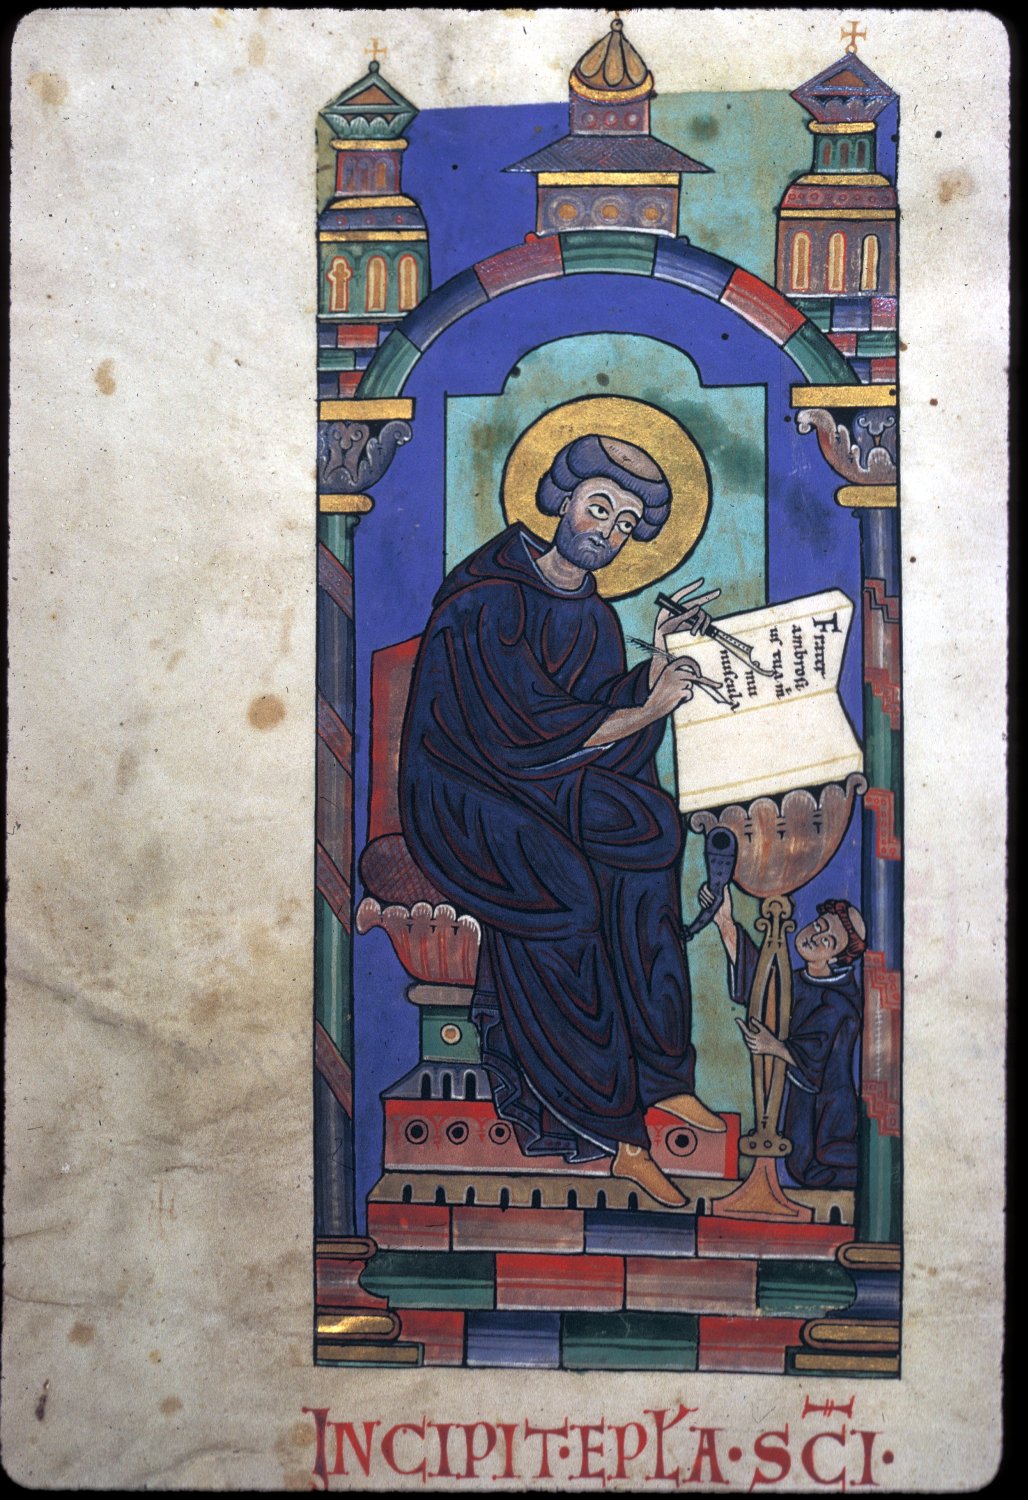 Frater
ambrosi
uſ tua m̄
mu
nuſcula
INCIPIT·EPL̄A·SC̄I·